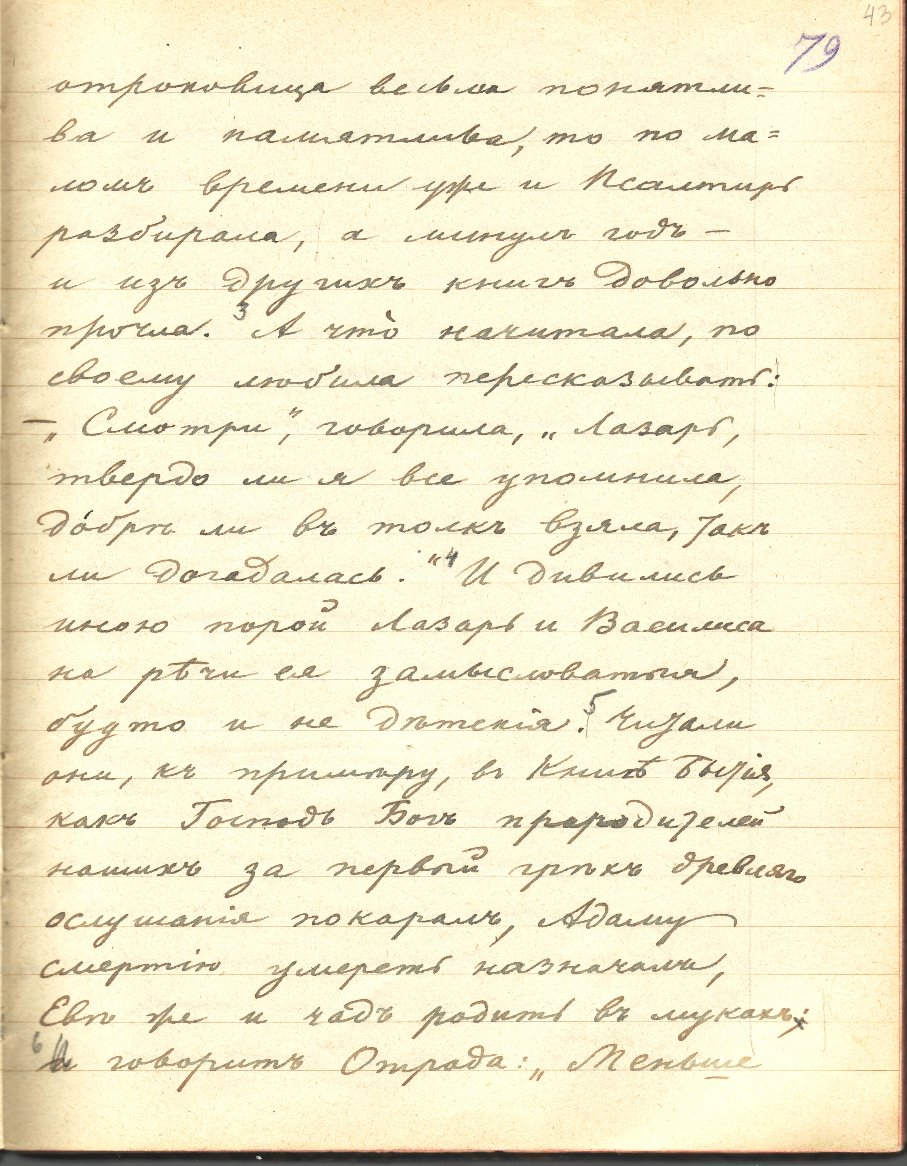 43
79
отроковица весьма понятли=
ва и памятлива, то по ма=
ломъ времени уже и Псалтирь
разбирала, а минулъ годъ —
и изъ другихъ книгъ довольно
прочла. 3 А что̀ начитала, по
своему любила пересказывать:
— „Смотри“, говорила, „Лазарь,
твердо ли я все упомнила,
до́брѣ ли въ толкъ взяла, такъ
ли догадалась.“ 4 И дивились
иною порой Лазарь и Василиса
на рѣчи ея замысловатыя,
будто и не дѣтскія. 5 Читали
они, къ примѣру, въ Книгѣ Бытія,
какъ Господь Богъ прародителей
нашихъ за первый грѣхъ древляго
ослушанія покаралъ, Адаму
смертію умереть назначалъ,
Евѣ же и чадъ родить въ мукахъ;
6 и говоритъ Отрада: „Меньше